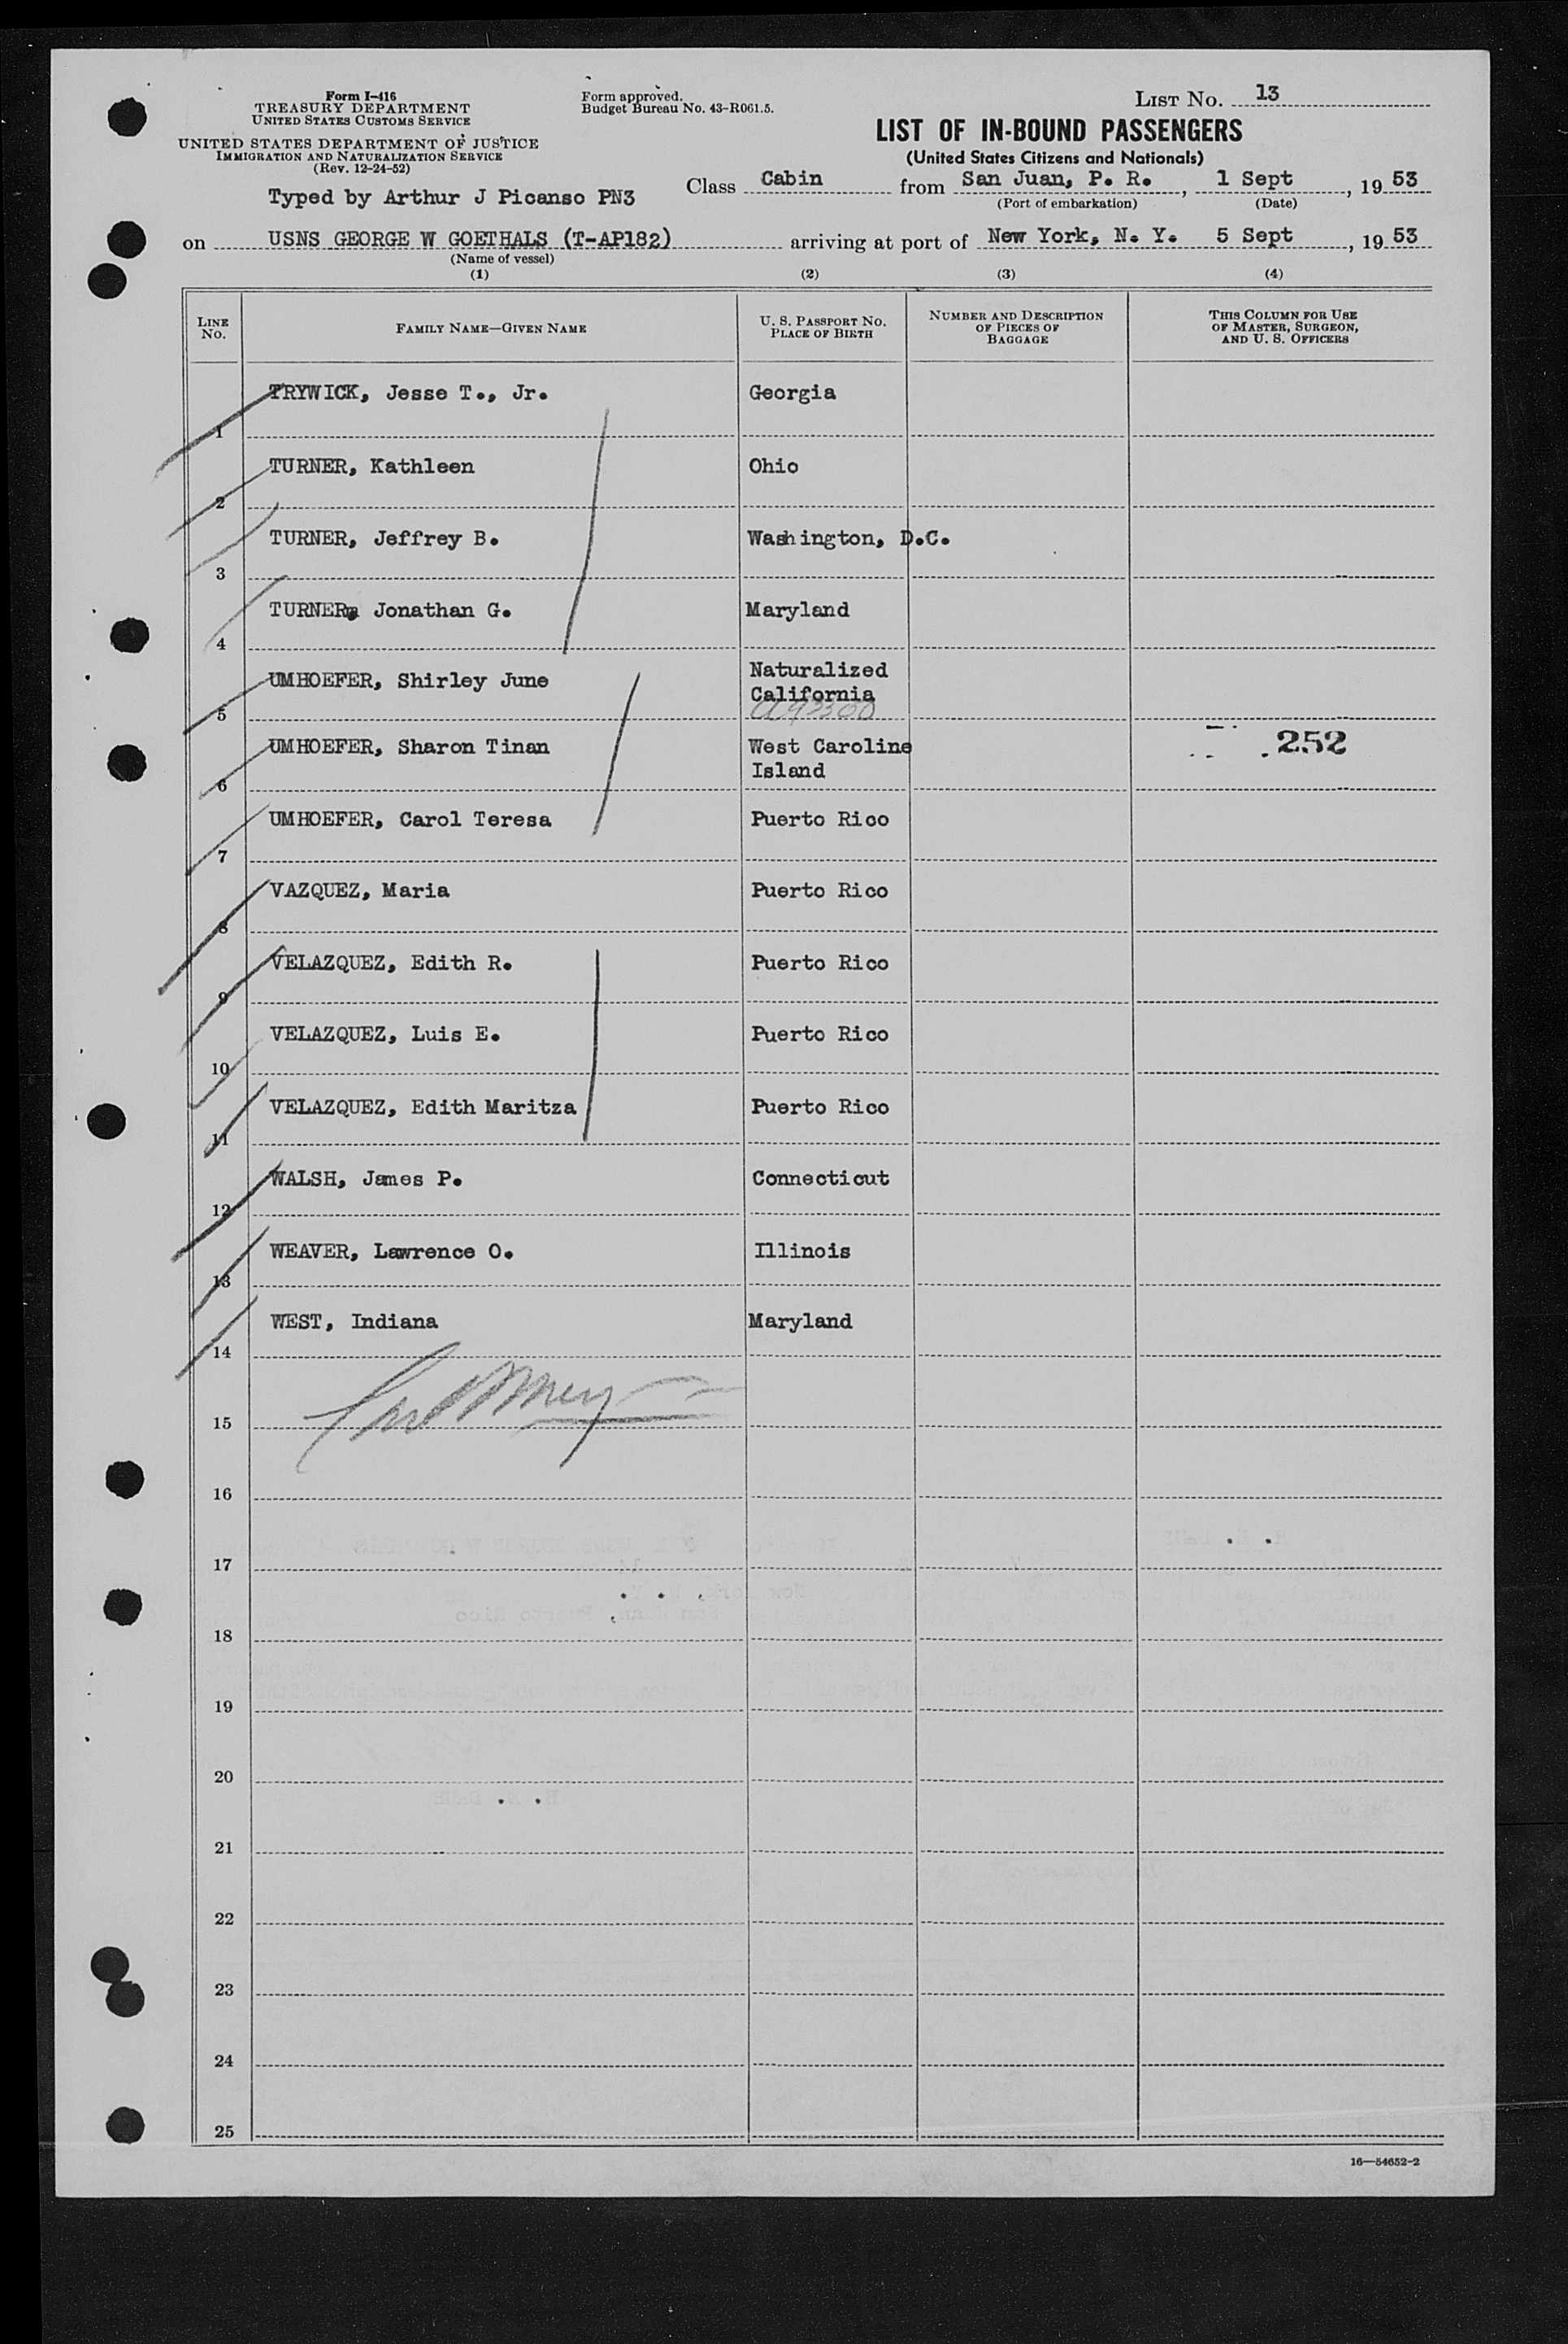 Form I-416
TREASURY DEPARTMENT
UNITED STATES CUSTOMS SERVICE
UNITED STATES DEPARTMENT OF JUSTICE
IMMIGRATION AND NATURALIZATION SERVICE
(Rev. 12-24-52)
Form approved.
Budget Bureau No. 43-R061.5.
LIST NO. 13
LIST OF IN-BOUND PASSENGERS
(United States Citizens and Nationals)
Typed by Arthur J Picanso PN3
Class Cabin from San Juan, P. R., 1 Sept, 1953
(Port of embarkation) (Date)
on USNS GEORGE W GOETHALS (T-AP182) arriving at port of New York, N. Y. 5 Sept, 1953
(Name of vessel)
(1) (2) (3) (4)
LINE NO. FAMILY NAME—GIVEN NAME U. S. PASSPORT NO. PLACE OF BIRTH NUMBER AND DESCRIPTION OF PIECES OF BAGGAGE THIS COLUMN FOR USE OF MASTER, SURGEON, AND U. S. OFFICERS
1 TRYWICK, Jesse T., Jr. Georgia
2 TURNER, Kathleen Ohio
3 TURNER, Jeffrey B. Washington, D.C.
4 TURNER, Jonathan G. Maryland
5 UMHOEFER, Shirley June Naturalized California
6 UMHOEFER, Sharon Tinan West Caroline Island 252
7 UMHOEFER, Carol Teresa Puerto Rico
8 VAZQUEZ, Maria Puerto Rico
9 VELAZQUEZ, Edith R. Puerto Rico
10 VELAZQUEZ, Luis E. Puerto Rico
11 VELAZQUEZ, Edith Maritza Puerto Rico
12 WALSH, James P. Connecticut
13 WEAVER, Lawrence O. Illinois
14 WEST, Indiana Maryland
15
16
17
18
19
20
21
22
23
24
25
16—54652-2